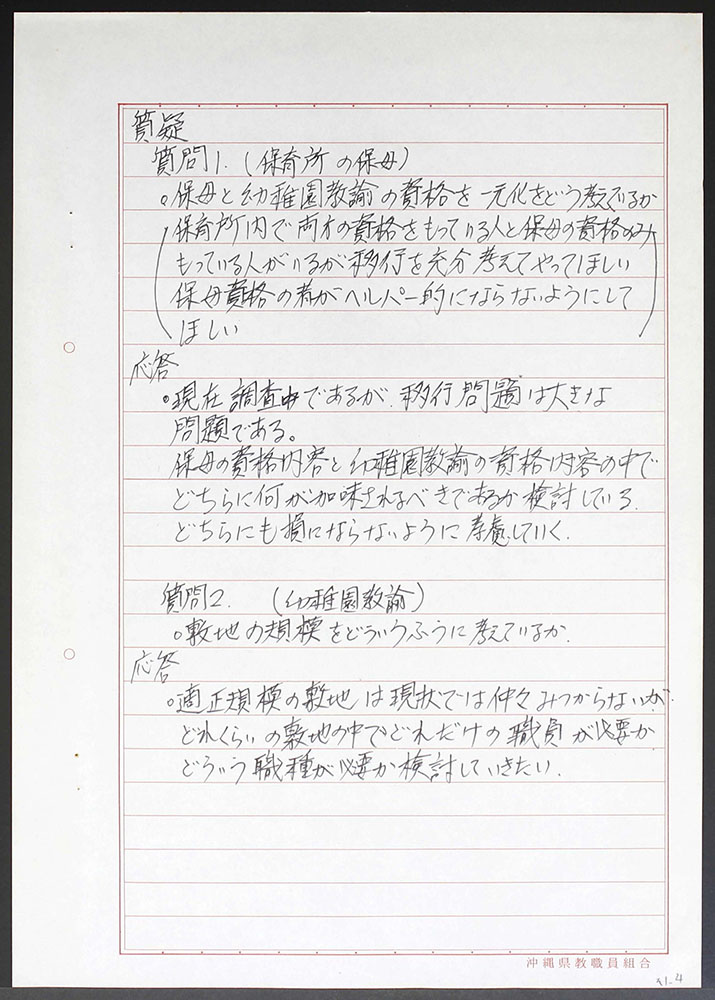 質疑
質問1.(保育所の保母)
。保母と幼稚園教諭の資格を一元化をどう考えているか
(保育所内で両方の資格をもっている人と保母の資格のみ
もっている人がいるが移行を充分考えてやってほしい
保母資格の者がヘルパー的にならないようにして
ほしい)
応答
。現在調査中であるが、移行問題は大きな
問題である。
保母の資格内容と幼稚園教諭の資格内容の中で
どちらに何が加味されるべきであるか検討している.
どちらにも損にならないように考慮していく.
質問2. (幼稚園教諭)
。敷地の規模をどういうふうに考えているか.
応答
。適正規模の敷地は現状では仲々みつからないが.
どれくらいの敷地の中でどれだけの職員が必要か
どういう職種が必要か検討していきたい.
沖縄県教職員組合